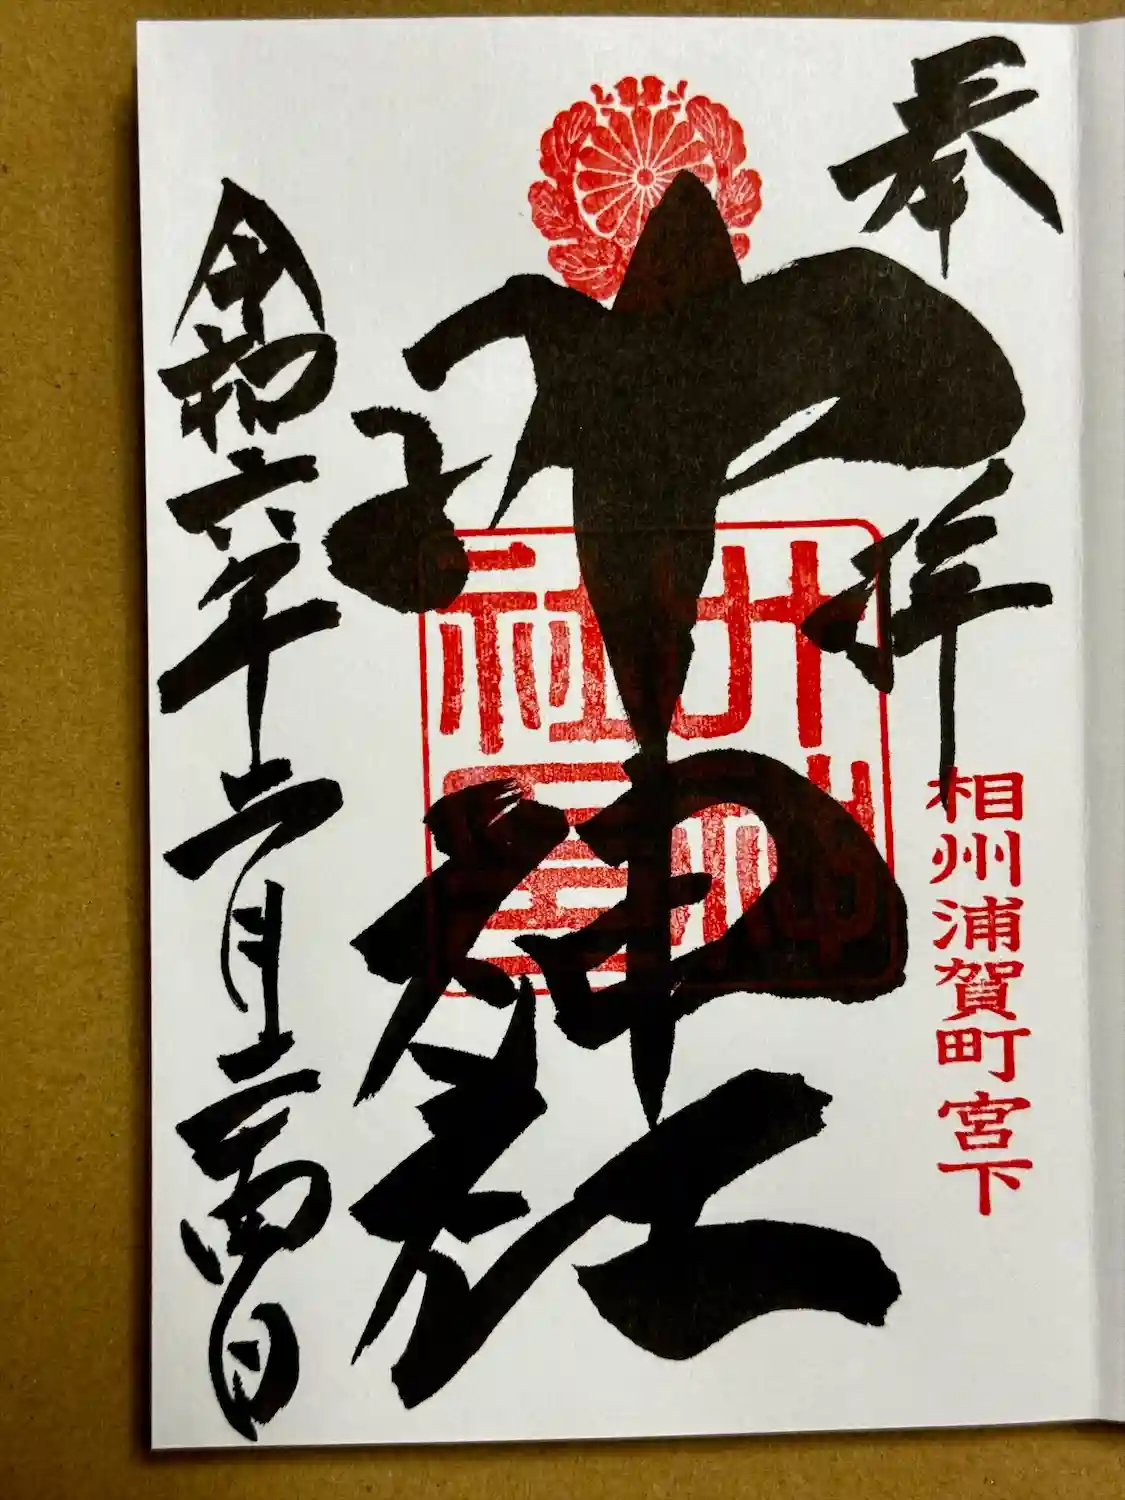 奉拝
相州浦賀町宮下
叶神社
叶神
社璽
令和六年二月二十四日